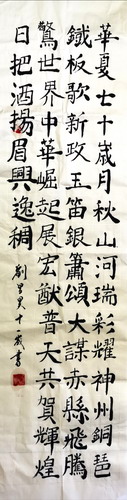 華夏七十歲月秋山河瑞彩耀神州銅琶
鐵板歌新政玉笛銀簫頌大謀赤縣飛騰
驚世界中華崛起展宏猷普天共賀輝煌
日把酒揚眉興逸稠
劉
十歲書